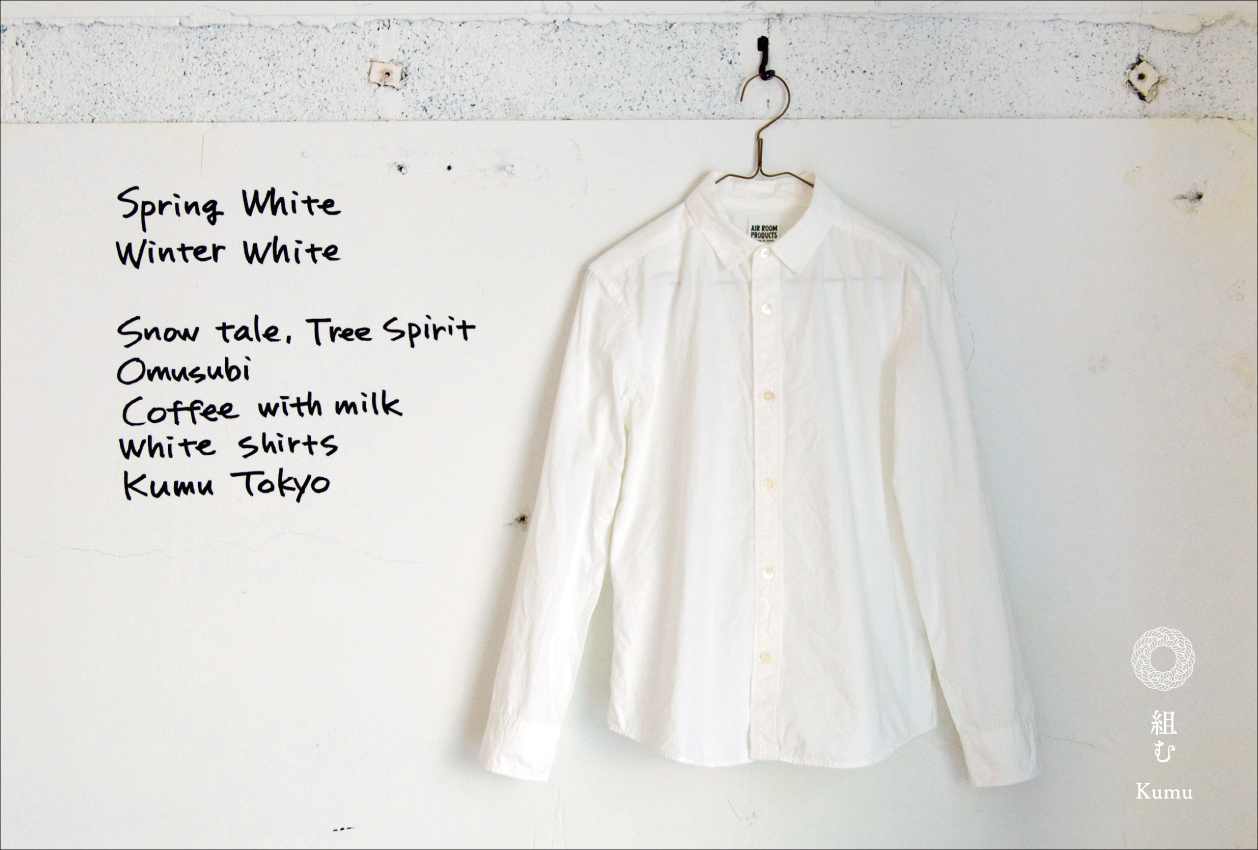 Spring White
Winter White
Snow tale, Tree Spirit
Omusubi
Coffee with milk
White shirts
Kumu Tokyo
AIR ROOM
PRODUCTS
組
む
Kumu